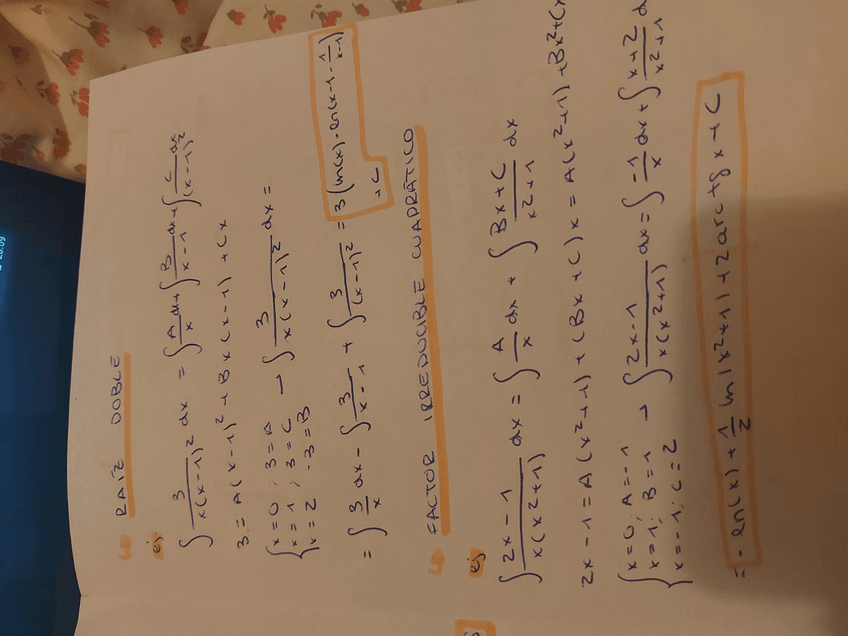 ↳ RAÍZ DOBLE
ej
∫ 3/(x(x-1)²) dx = ∫ A/x dx + ∫ B/(x-1) dx + ∫ C/(x-1)² dx
3 = A(x-1)² + Bx(x-1) + Cx
{ x=0 ; 3=A
x=1 ; 3=C
x=2 -3=B → ∫ 3/(x(x-1)²) dx =
= ∫ 3/x dx - ∫ 3/(x-1) + ∫ 3/(x-1)² = 3(ln(x) - ln(x-1 - 1/(x-1)) + C
↳ FACTOR IRREDUCIBLE CUADRÁTICO
ej
∫ (2x-1)/(x(x²+1)) dx = ∫ A/x dx + ∫ (Bx+C)/(x²+1) dx
2x-1 = A(x²+1) + (Bx+C)x = A(x²+1) + Bx² + Cx
{ x=0, A=-1
x=1; B=1
x=-1; C=2 → ∫ (2x-1)/(x(x²+1)) dx = ∫ -1/x dx + ∫ (x+2)/(x²+1) d
= -ln(x) + 1/2 ln|x²+1| + 2 arc tg x + C